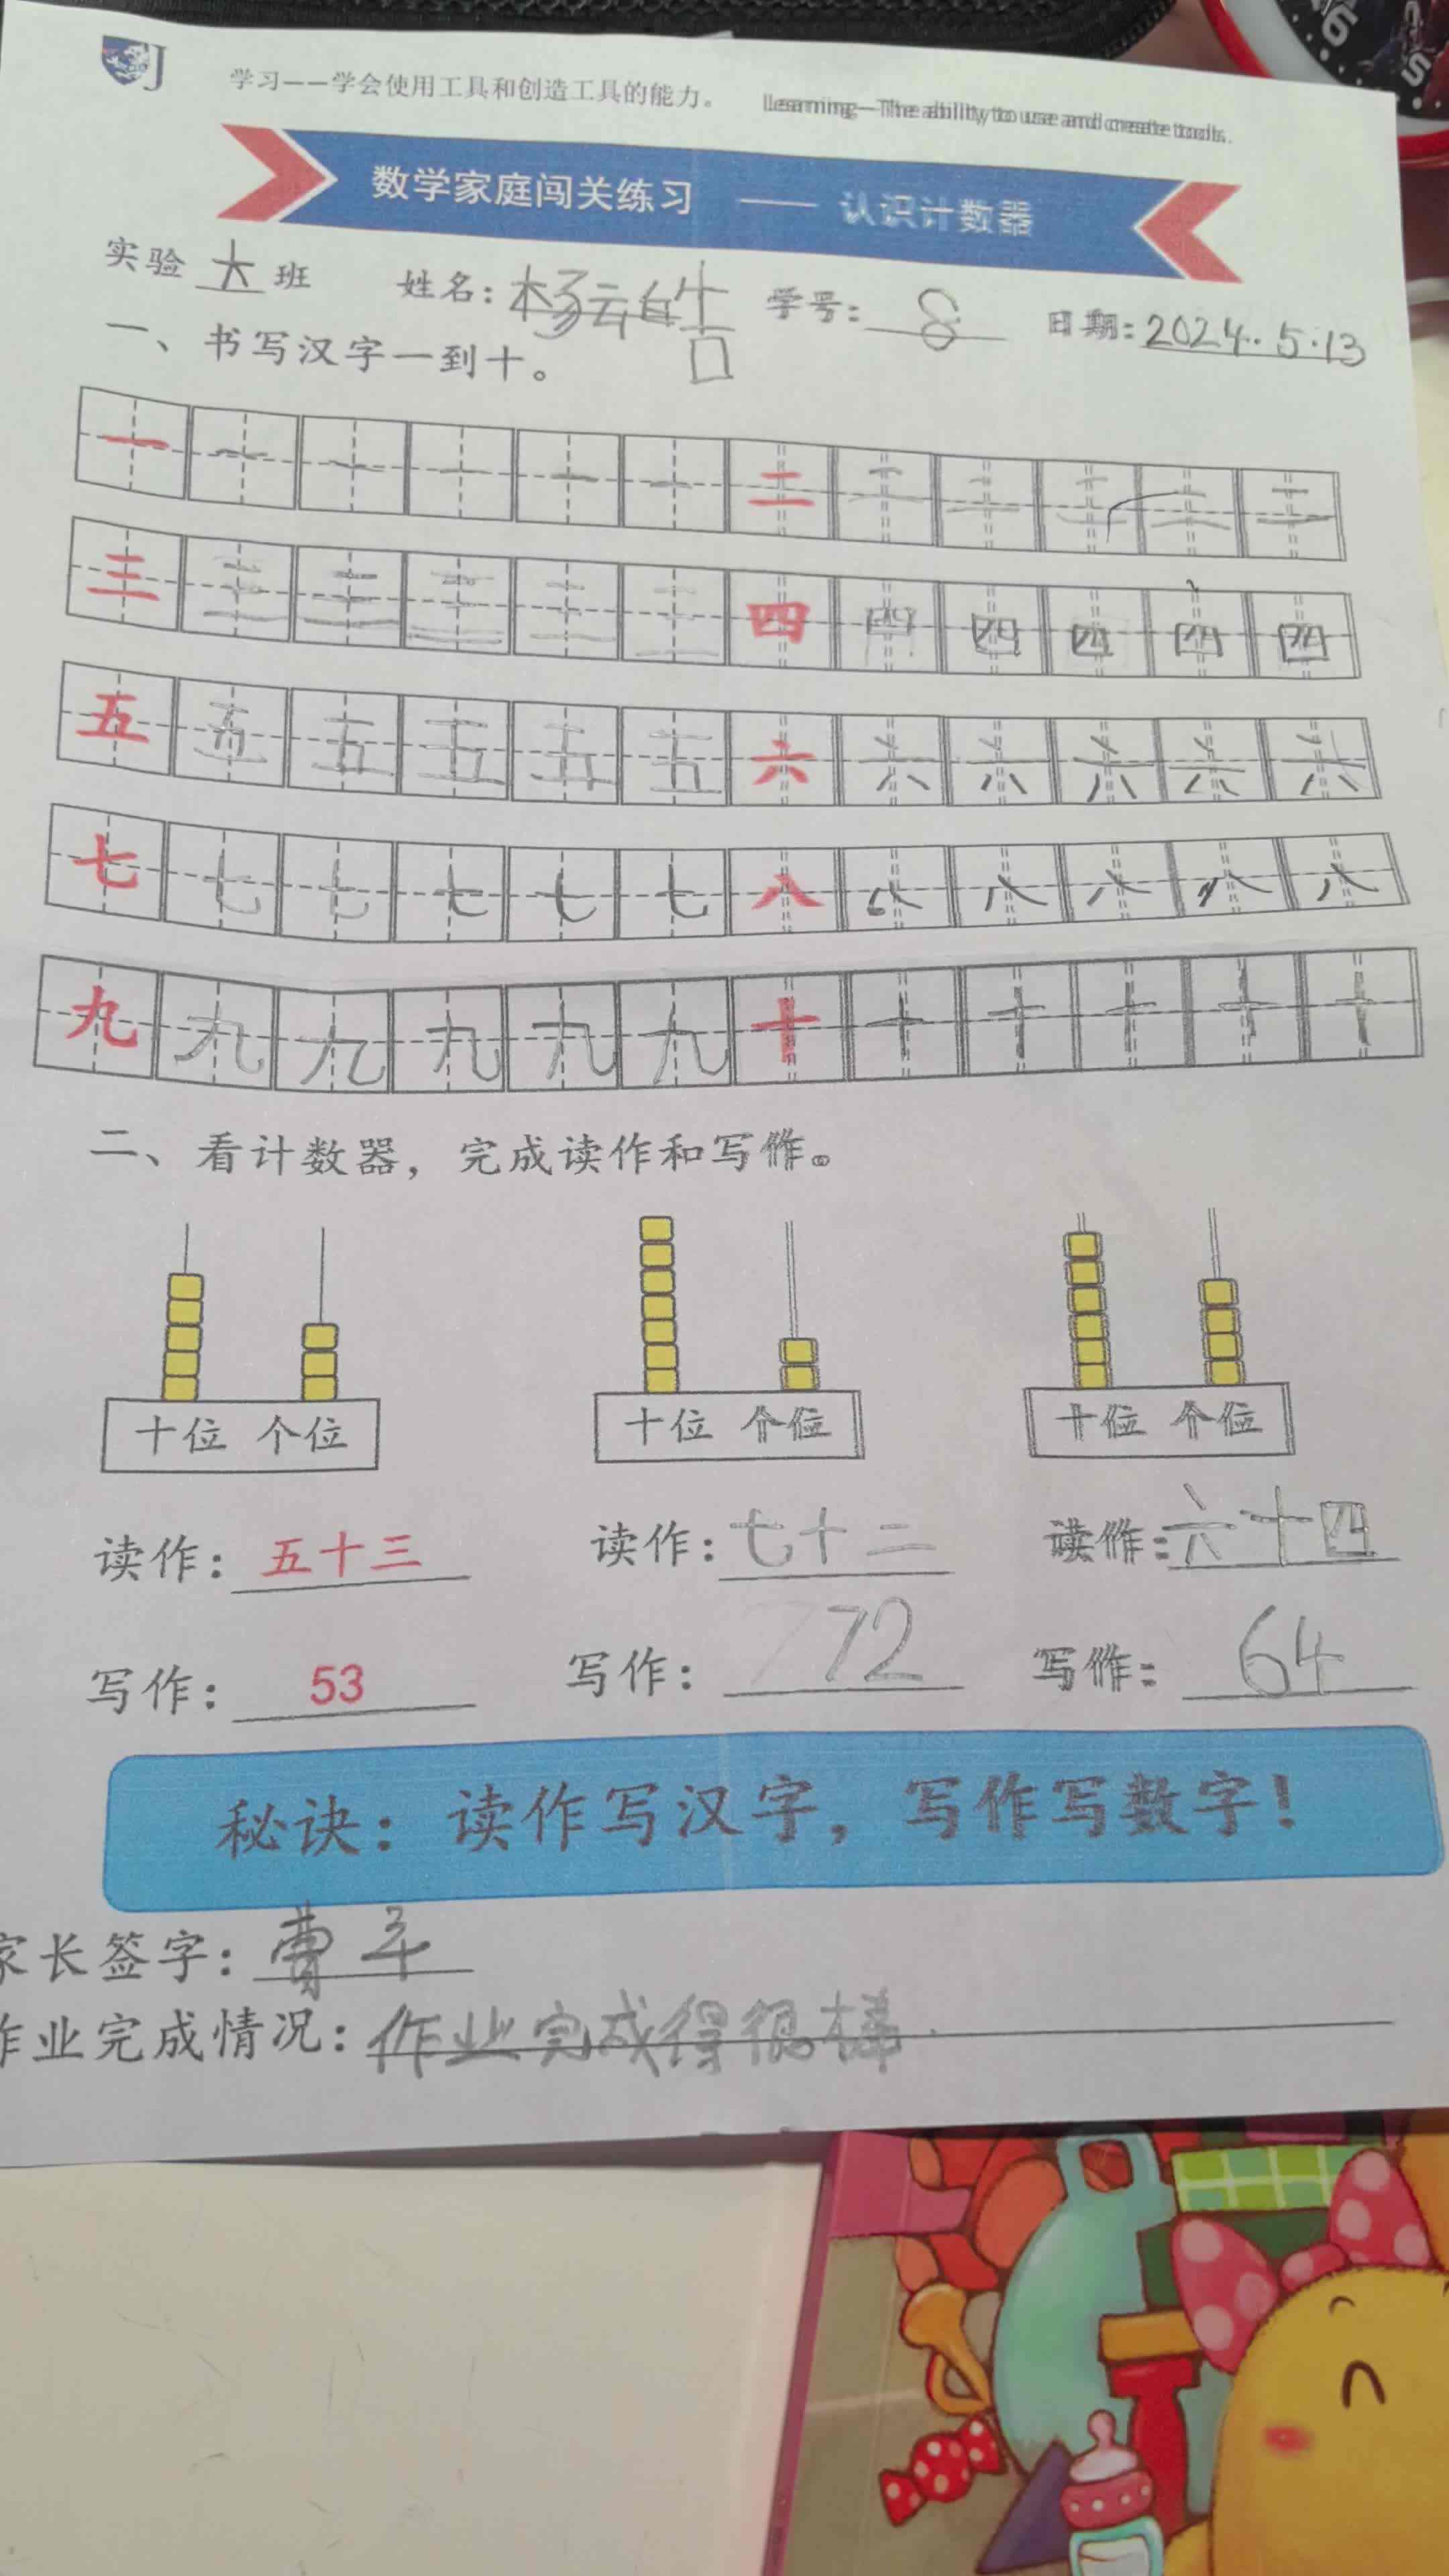 学习——学会使用工具和创造工具的能力。 Learning—The ability to use and create tools.
数学家庭闯关练习 —— 认识计数器
实验 大 班 姓名:杨云皓 学号: 8 日期:2024.5.13
一、书写汉字一到十。
一 一 一 一 一 一 二 二 二 二 二 二
三 三 三 三 三 三 四 四 四 四 四 四
五 五 五 五 五 五 六 六 六 六 六 六
七 七 七 七 七 七 八 八 八 八 八 八
九 九 九 九 九 九 十 十 十 十 十 十
二、看计数器，完成读作和写作。
十位 个位 十位 个位 十位 个位
读作: 五十三 读作:七十二 读作:六十四
写作: 53 写作: 72 写作: 64
秘诀: 读作写汉字，写作写数字!
家长签字: 曹
作业完成情况:作业完成得很棒.